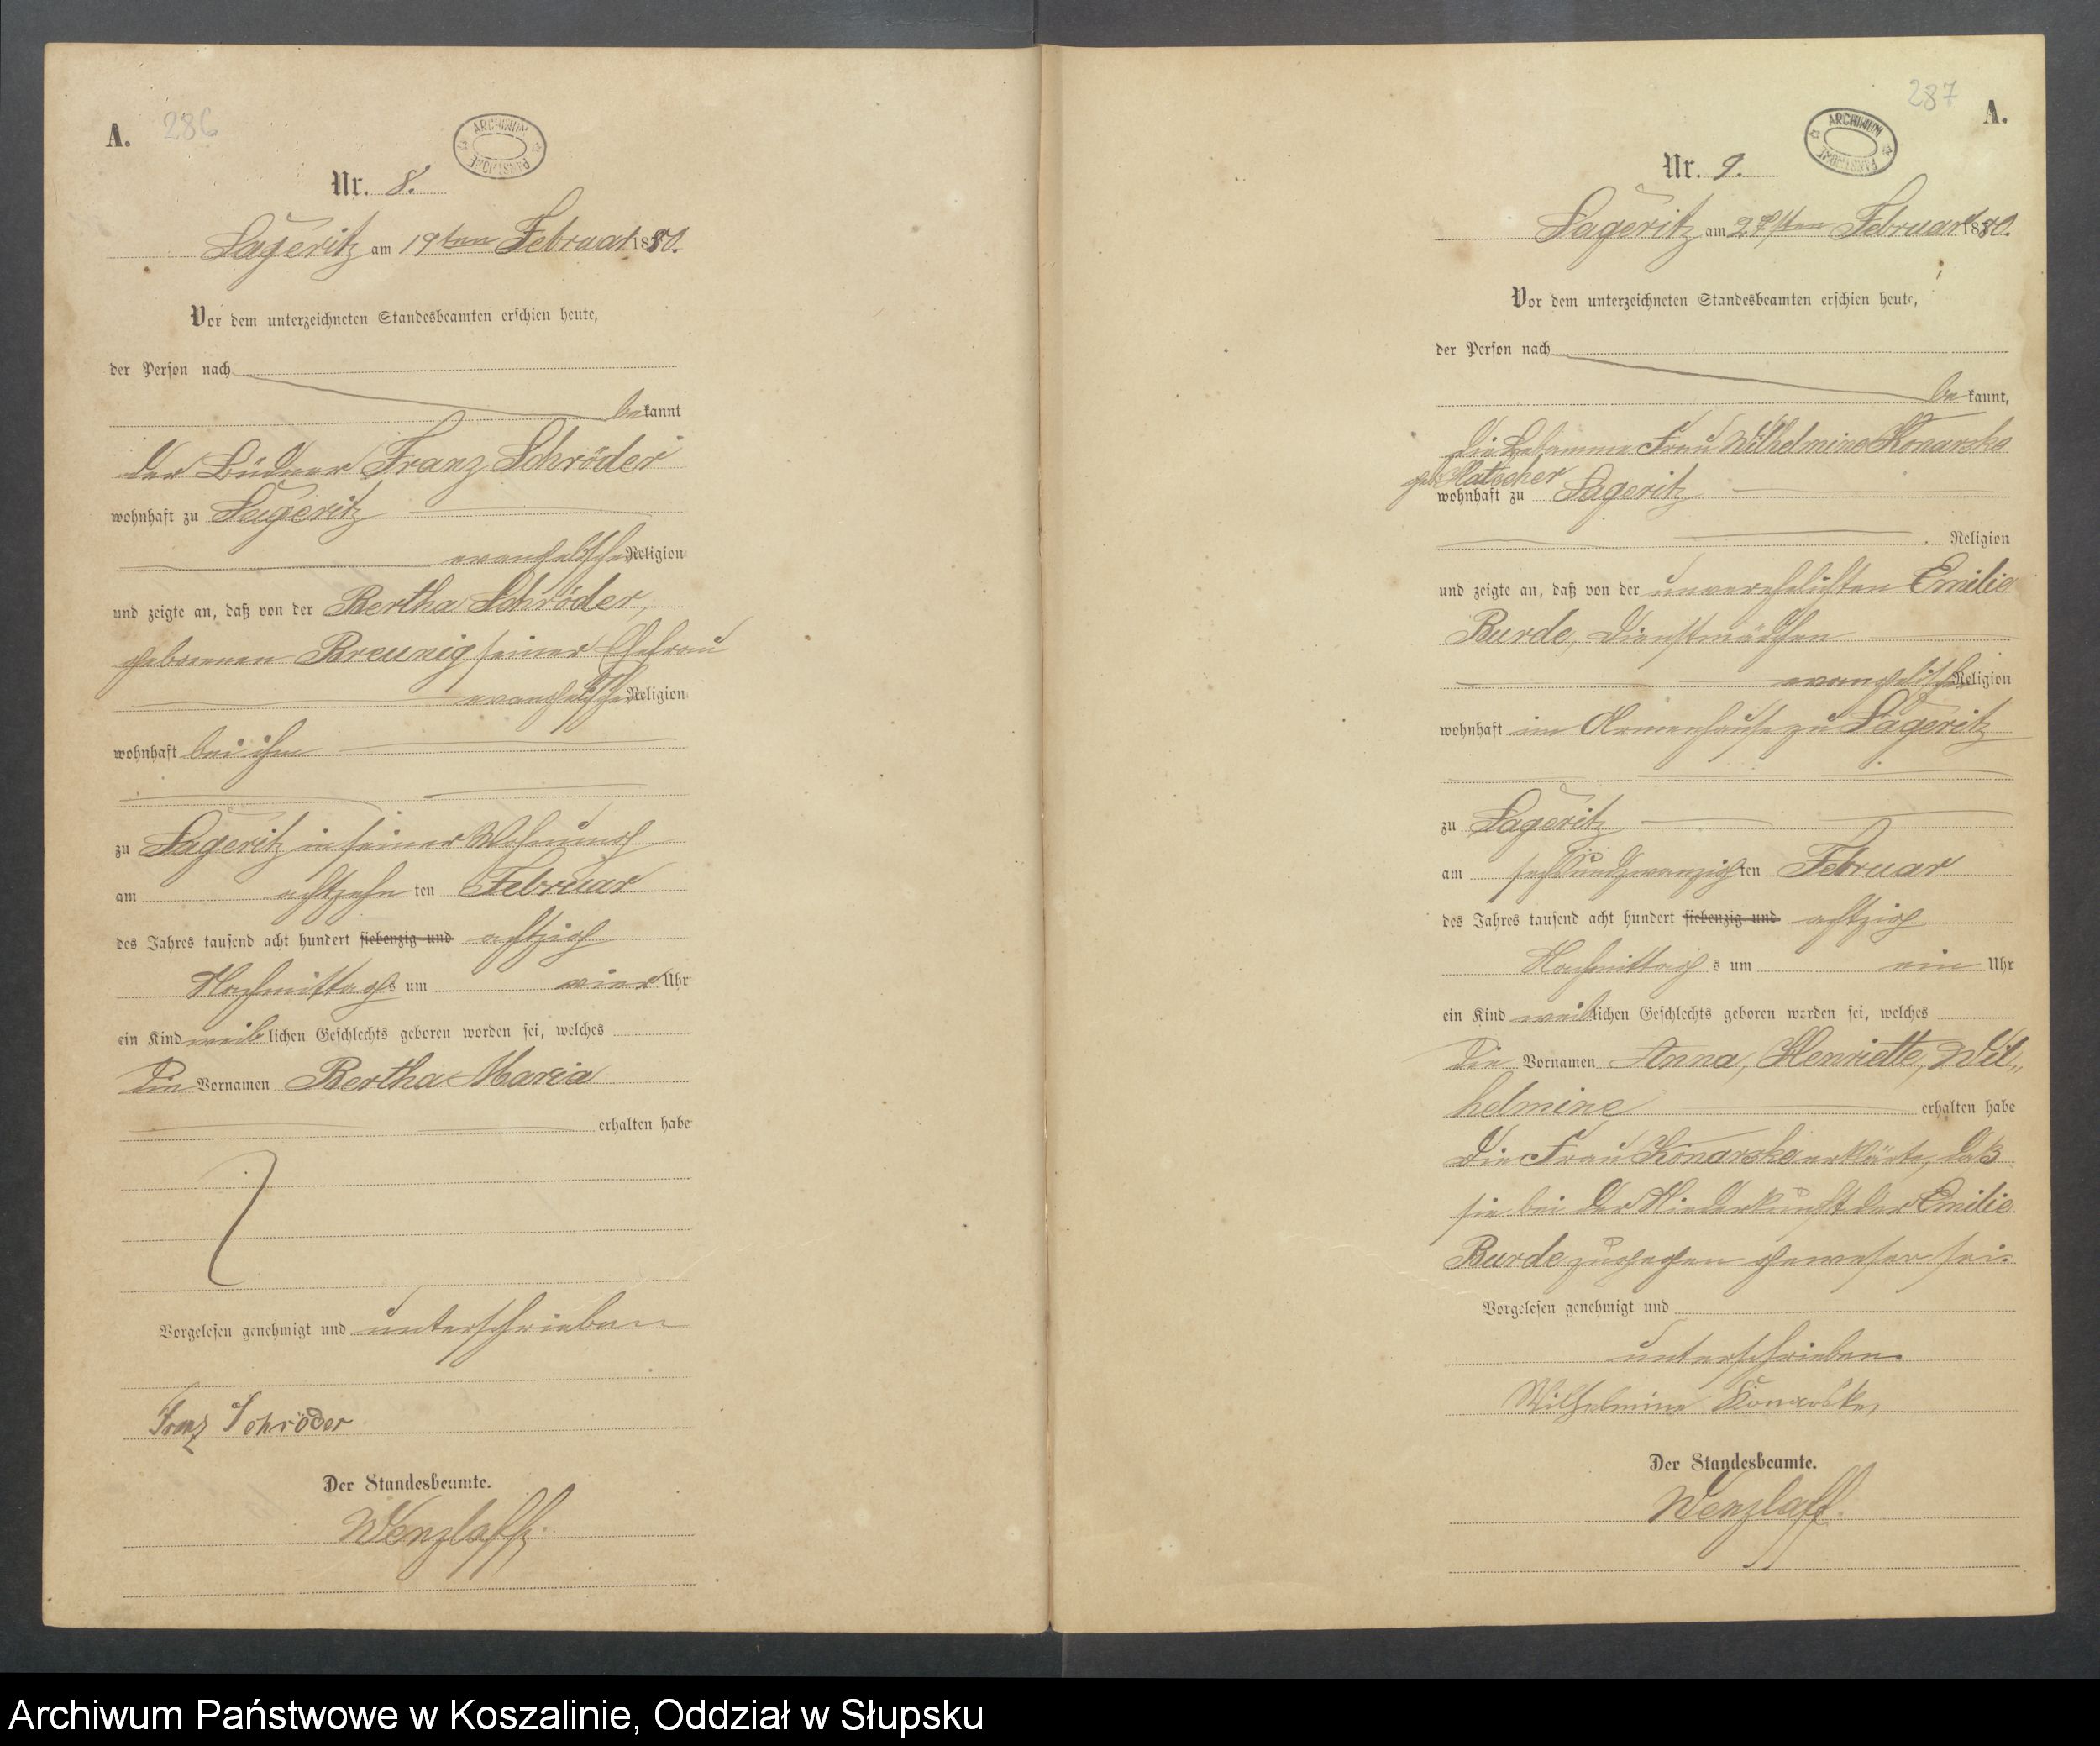 A. 286
ARCHIWUM PAŃSTWOWE
Nr. 8.
Lageritz am 19ten Februar 1880.
Vor dem unterzeichneten Standesbeamten erschien heute,
der Person nach
bekannt
der Büdner Franz Schröder
wohnhaft zu Lageritz
evangelischer Religion
und zeigte an, daß von der Bertha Schröder,
geborenen Breunig seiner Ehefrau
evangelischer Religion
wohnhaft bei ihm
zu Lageritz in seiner Wohnung
am achtzehn ten Februar
des Jahres tausend acht hundert siebenzig und achtzig
Nachmittags um vier Uhr
ein Kind weiblichen Geschlechts geboren worden sei, welches
die Vornamen Bertha Maria
erhalten habe
Vorgelesen genehmigt und unterschrieben
Franz Schröder
Der Standesbeamte.
Wenzlaff.
287 A.
ARCHIWUM PAŃSTWOWE
Nr. 9.
Lageritz am 27sten Februar 1880.
Vor dem unterzeichneten Standesbeamten erschien heute,
der Person nach
bekannt,
die Hebamme Frau Wilhelmine Konarske
geb. Natscher
wohnhaft zu Lageritz
Religion
und zeigte an, daß von der unverehelichten Emilie
Burde, Dienstmädchen
evangelischer Religion
wohnhaft im Armenhause zu Lageritz
zu Lageritz
am sechsundzwanzigten Februar
des Jahres tausend acht hundert siebenzig und achtzig
Nachmittag s um ein Uhr
ein Kind weiblichen Geschlechts geboren worden sei, welches
die Vornamen Anna, Henriette, Wil„
helmine erhalten habe
Die Frau Konarske erklärte, daß
sie bei der Niederkunft der Emilie
Burde zugegen gewesen sei.
Vorgelesen genehmigt und
unterschrieben.
Wilhelmine Konarske,
Der Standesbeamte.
Wenzlaff.
Archiwum Państwowe w Koszalinie, Oddział w Słupsku